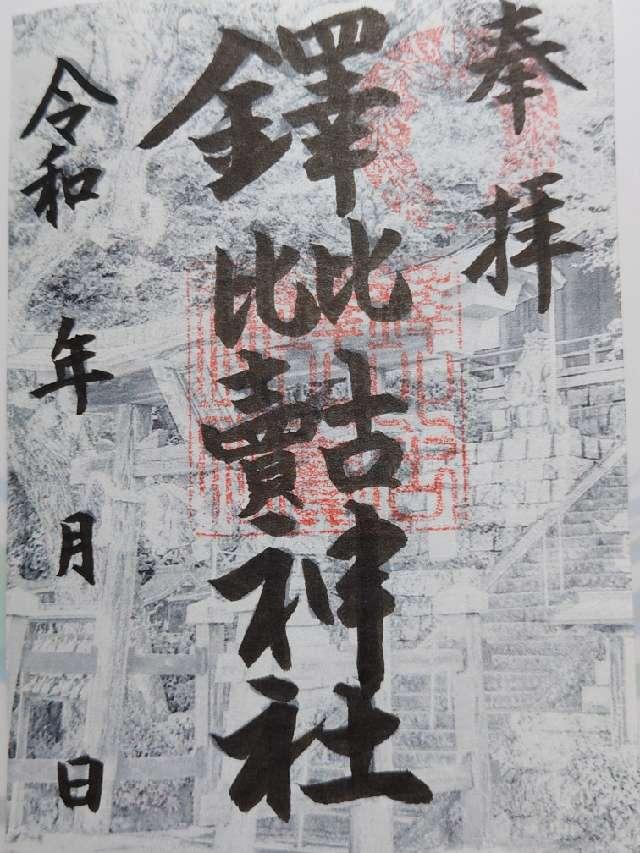 奉拝
鐸比古
比賣神社
令和 年 月 日